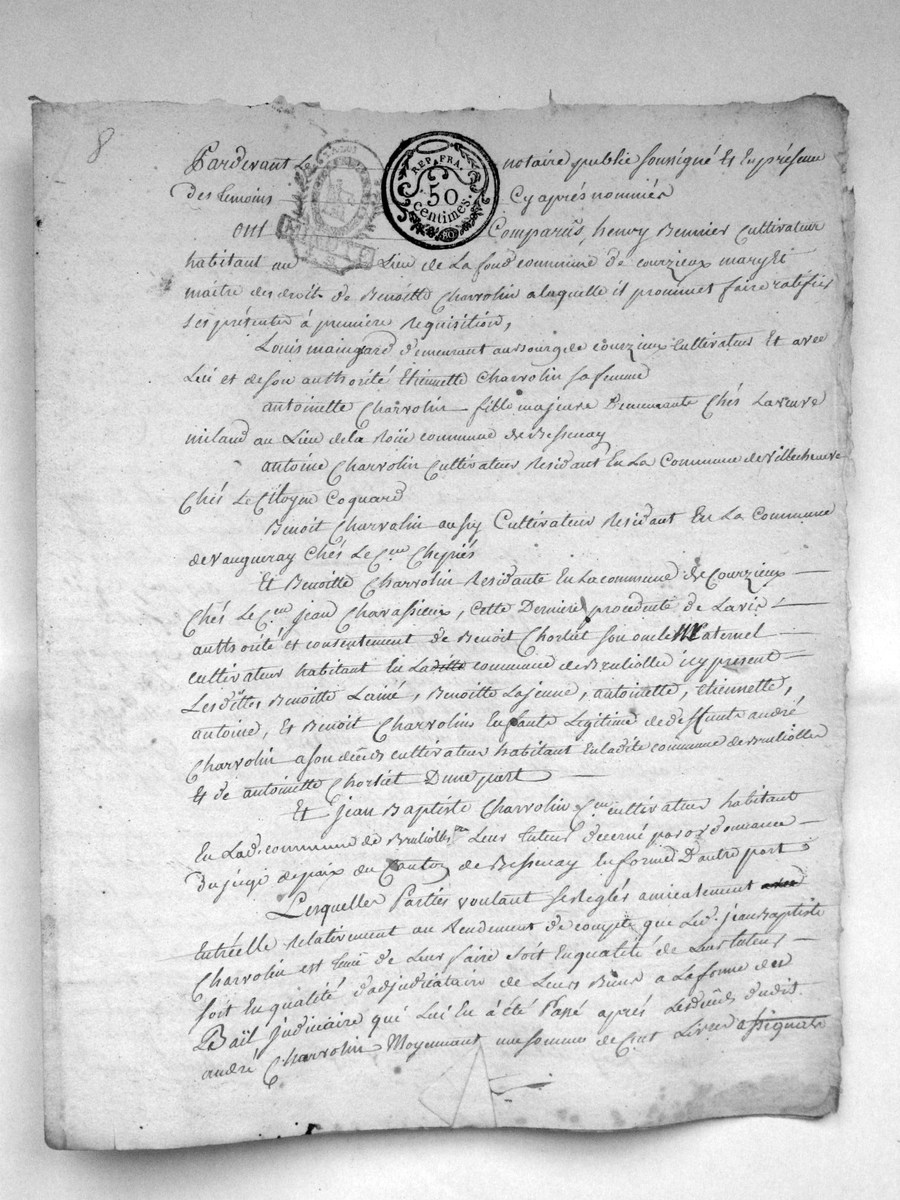 8
Pardevant Le notaire public soussigné Et En présence
REP. FRA.
50
centimes.
80
des temoins Cy aprés nommés
ont Comparûs, henry Bennier Cultivateur
habitant au Lieu de La fond commune de courzieux mary Et
maitre des droits de Benoitte Charvolin a laquelle il prommet faire ratifier
ses présentes à premiere Requisition,
Louis maingard demeurant au Bourg de Courzieux Cultivateur Et avec
Lui et de son authorité Etiennette Charvolin sa femme
antoinette Charvolin fille majeure Demeurante Chés La veuve
miland au Lieu de la Roüe commune de Bessenay
antoine Charvolin Cultivateur Residant En La Commune de villecheneve
Chés Le Citoyen Coquard
Benoit Charvolin aussy Cultivateur Residant En La Commune
de vaugneray Chés Le Cen
Et Benoitte Charvolin Residante En La commune de Courzieux
Chés Le Cen jean Chavassieux, cette Derniere procedente de L'avis
authorité et consentement de Benoit Chorliet son oncle Maternel
cultivateur habitant En La ditte commune de Brulliolle icy present
Lesdittes Benoitte L'ainé, Benoitte La jeune, antoinette, Etiennette,
antoine, Et Benoit Charvolin Enfants Legitime de deffunts andré
Charvolin a son décéds cultivateur habitant En ladite commune de Brulliolles
Et de antoinette Chorliet D'une part
Et jean Baptiste Charvolin Cen cultivateur habitant
En Lad. commune de Brulliolles Leur tuteur decerné par ordonnance
Du juge de paix du Canton de Bessenay En forme D'autre part
Lesquelles Parties voulant se Reglés amicalement
Entr'eelle relativement au Rendement de compte que Led. jean Baptiste
Charvolin est tenu de Leur faire soit En qualité de Leur tuteur
soit En qualité d'adjudicataire de Leurs Biens a La forme du
Bail judiciaire qui Lui En a été Passé aprés Le décéds dudit
andré Charvolin Moyennant une somme de Cent Livres assignats